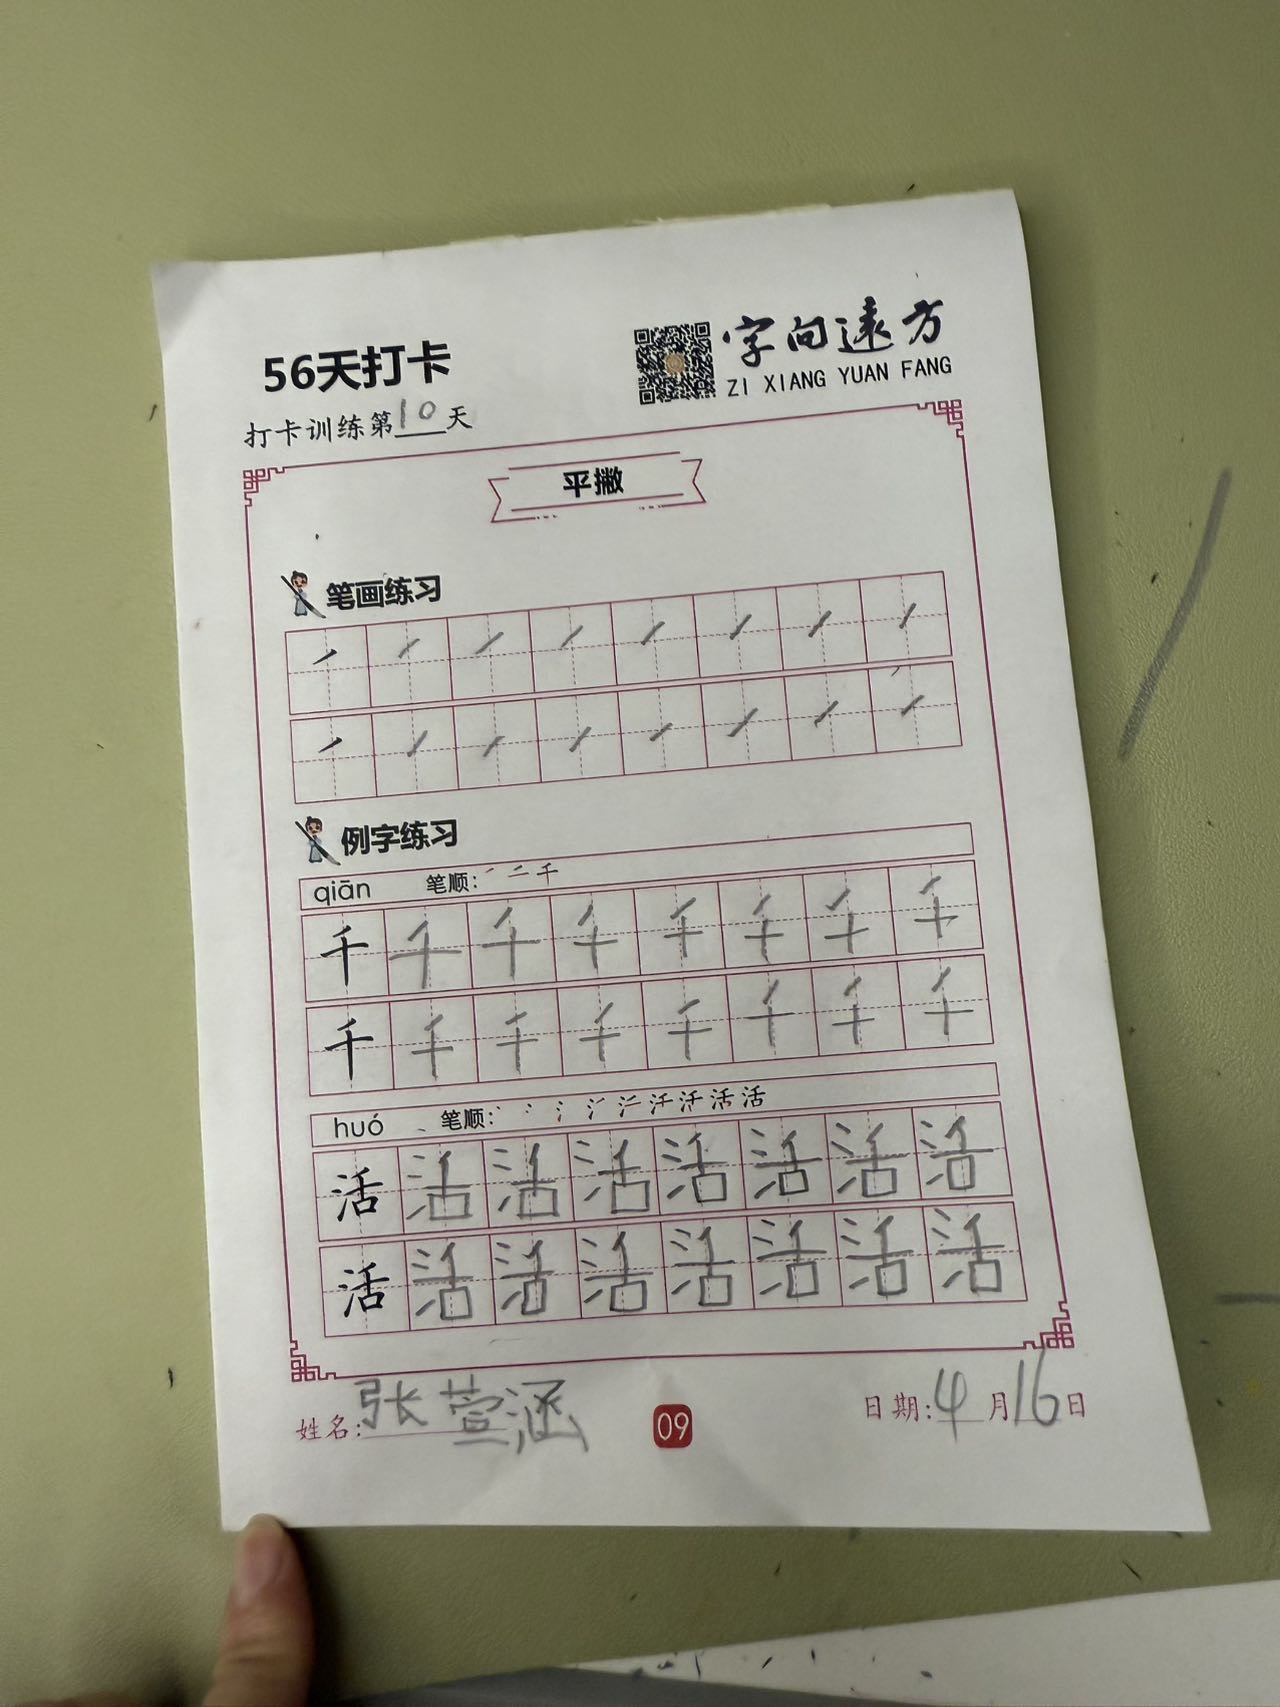 56天打卡
字向遠方
ZI XIANG YUAN FANG
打卡训练第10天
平撇
笔画练习
例字练习
qiān 笔顺: ㇒ 二 千
千 千 千 千 千 千 千 千
千 千 千 千 千 千 千 千
huó 笔顺: 活 活
活 活 活 活 活 活 活 活
活 活 活 活 活 活 活 活
姓名: 张萱涵
09
日期: 4月16日